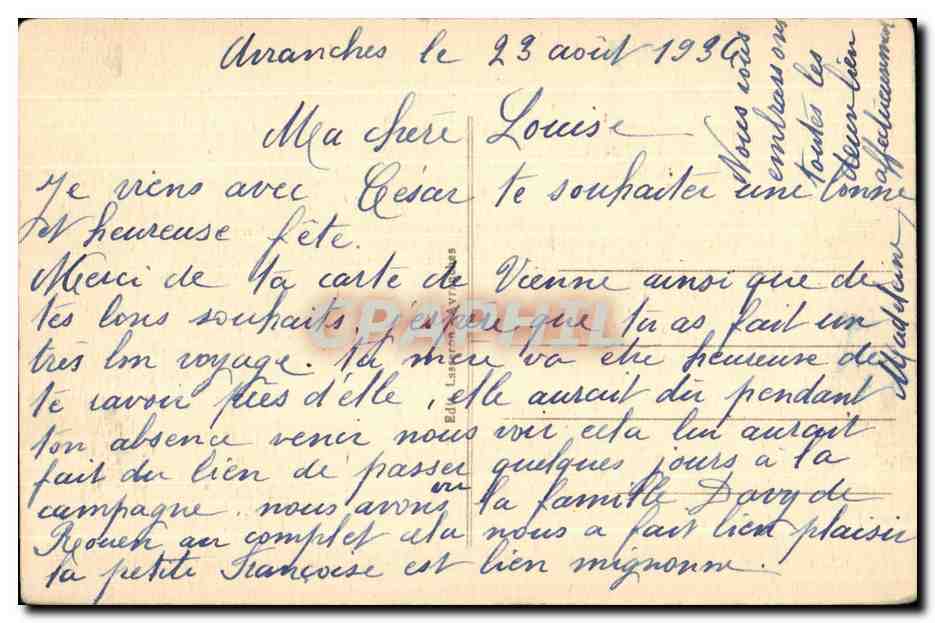 Avranches le 23 août 1936
Ma chère Louise
Je viens avec César te souhaiter une bonne
et heureuse fête.
Merci de ta carte de Vienne ainsi que de
tes bons souhaits, j'espère que tu as fait un
très bon voyage. ta mère va être heureuse de
te savoir près d'elle, elle aurait dû pendant
ton absence venir nous voir cela lui aurait
fait du bien de passer quelques jours à la
campagne. nous avons vu la famille Davy de
Rouen au complet cela nous a fait bien plaisir
la petite Françoise est bien mignonne.
Nous vous
embrassons
toutes les
deux bien
affectueusement
Madeleine
CPAPHIL